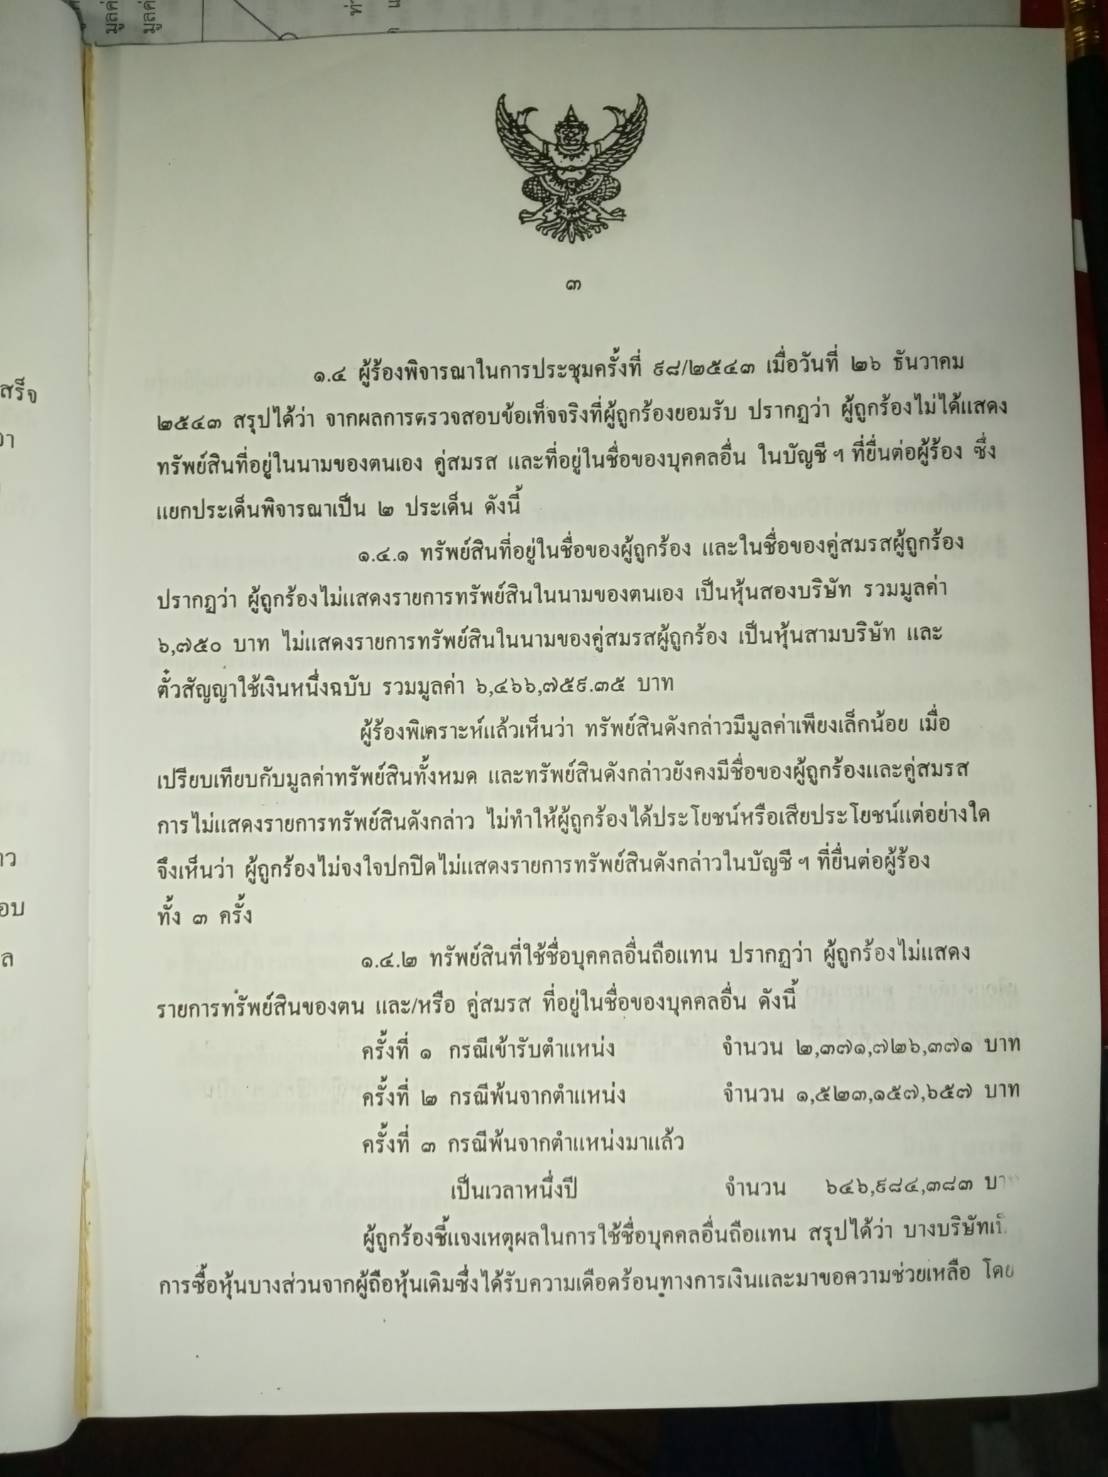 มูลค่
มูลค่
ท่
สร็จ
อบ
ล
๓
๑.๔ ผู้ร้องพิจารณาในการประชุมครั้งที่ ๙๘/๒๕๔๓ เมื่อวันที่ ๒๖ ธันวาคม
๒๕๔๓ สรุปได้ว่า จากผลการตรวจสอบข้อเท็จจริงที่ผู้ถูกร้องยอมรับ ปรากฏว่า ผู้ถูกร้องไม่ได้แสดง
ทรัพย์สินที่อยู่ในนามของตนเอง คู่สมรส และที่อยู่ในชื่อของบุคคลอื่น ในบัญชี ฯ ที่ยื่นต่อผู้ร้อง ซึ่ง
แยกประเด็นพิจารณาเป็น ๒ ประเด็น ดังนี้
๑.๔.๑ ทรัพย์สินที่อยู่ในชื่อของผู้ถูกร้อง และในชื่อของคู่สมรสผู้ถูกร้อง
ปรากฏว่า ผู้ถูกร้องไม่แสดงรายการทรัพย์สินในนามของตนเอง เป็นหุ้นสองบริษัท รวมมูลค่า
๖,๗๕๐ บาท ไม่แสดงรายการทรัพย์สินในนามของคู่สมรสผู้ถูกร้อง เป็นหุ้นสามบริษัท และ
ตั๋วสัญญาใช้เงินหนึ่งฉบับ รวมมูลค่า ๖,๔๖๖,๗๕๙.๓๕ บาท
ผู้ร้องพิเคราะห์แล้วเห็นว่า ทรัพย์สินดังกล่าวมีมูลค่าเพียงเล็กน้อย เมื่อ
เปรียบเทียบกับมูลค่าทรัพย์สินทั้งหมด และทรัพย์สินดังกล่าวยังคงมีชื่อของผู้ถูกร้องและคู่สมรส
การไม่แสดงรายการทรัพย์สินดังกล่าว ไม่ทำให้ผู้ถูกร้องได้ประโยชน์หรือเสียประโยชน์แต่อย่างใด
จึงเห็นว่า ผู้ถูกร้องไม่จงใจปกปิดไม่แสดงรายการทรัพย์สินดังกล่าวในบัญชี ฯ ที่ยื่นต่อผู้ร้อง
ทั้ง ๓ ครั้ง
๑.๔.๒ ทรัพย์สินที่ใช้ชื่อบุคคลอื่นถือแทน ปรากฏว่า ผู้ถูกร้องไม่แสดง
รายการทรัพย์สินของตน และ/หรือ คู่สมรส ที่อยู่ในชื่อของบุคคลอื่น ดังนี้
ครั้งที่ ๑ กรณีเข้ารับตำแหน่ง จำนวน ๒,๓๗๑,๗๒๖,๓๗๑ บาท
ครั้งที่ ๒ กรณีพ้นจากตำแหน่ง จำนวน ๑,๕๒๓,๑๕๗,๖๕๗ บาท
ครั้งที่ ๓ กรณีพ้นจากตำแหน่งมาแล้ว
เป็นเวลาหนึ่งปี จำนวน ๖๔๖,๙๘๔,๓๘๓ บาท
ผู้ถูกร้องชี้แจงเหตุผลในการใช้ชื่อบุคคลอื่นถือแทน สรุปได้ว่า บางบริษัท
การซื้อหุ้นบางส่วนจากผู้ถือหุ้นเดิมซึ่งได้รับความเดือดร้อนทางการเงินและมาขอความช่วยเหลือ โดย